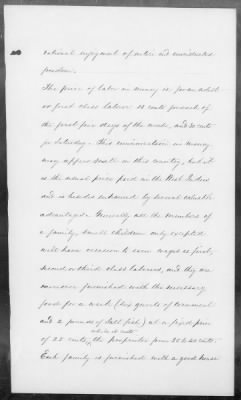 rational enjoyment of entire and unmolested
freedom.
The price of labor in money is for an adult
or first class laborer 25 cents for each of
the first five days of the week, and 30 cents
for Saturday. This remuneration in money
may appear small in this country, but it
is the actual price paid in the West Indies
and is besides enhanced by several valuable
advantages. Generally all the members of
a family, small children only excepted
will have occasion to earn wages as first,
second or third class laborers, and they are
moreover furnished with the necessary
food for a week (six quarts of cornmeal
and 2 pounds of salt fish) at a fixed price
while it costs
of 25 cents, the proprietor from 35 to 50 cents.
Each family is furnished with a good house